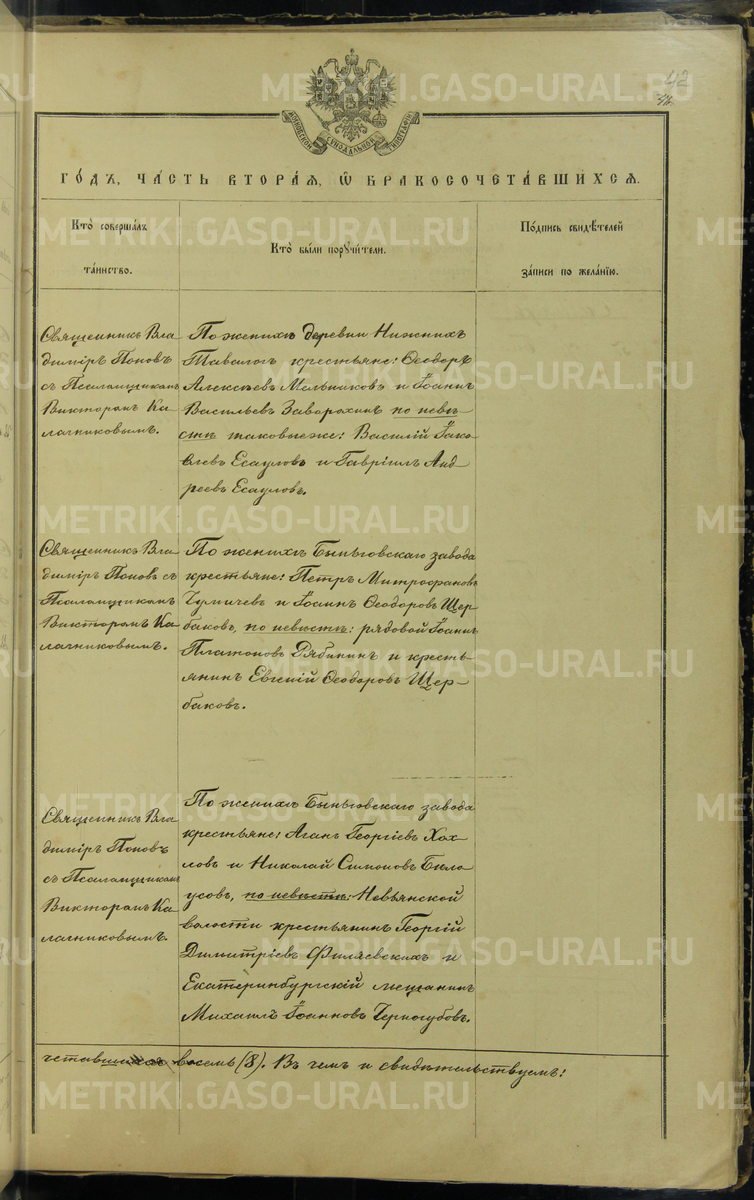 METRIKI.GASO-URAL.RU
42
МОСКОВСКОЙ СѴНОДАЛЬНОЙ ТИПОГРАФІИ
ГО́ДЪ, ЧА́СТЬ ВТОРА́Я, Ѡ БРАКОСОЧЕТА́ВШИХСЯ.
Кто̀ соверша́лъ
та́инство.
Кто̀ бы́ли порꙋчи́тели.
По́дпись свидѣ́телей
за́писи по жела́нію.
Священникъ Вла-
димiръ Поповъ
съ Псаломщикомъ
Викторомъ Ка-
лачниковымъ.
По женихѣ деревни Нижнихъ
Таволог крестьяне: Ѳеодоръ
Алексѣевъ Мельниковъ и Іоаннъ
Васильевъ Заворохинъ по невѣ-
стѣ таковыеже: Василій Іако-
влевъ Есауловъ и Гавріилъ Анд-
реевъ Есауловъ.
Священникъ Вла-
димiръ Поповъ съ
Псаломщикомъ
Викторомъ Ка-
лачниковымъ.
По женихѣ Быньговскаго завода
крестьяне: Петръ Митрофановъ
Чумичевъ и Іоаннъ Ѳеодоровъ Щер-
баковъ, по невѣстѣ: рядовой Іоаннъ
Платоновъ Рябининъ и кресть-
янинъ Евгеній Ѳеодоровъ Щер-
баковъ.
Священникъ Вла-
димiръ Поповъ
съ Псаломщикомъ
Викторомъ Ка-
лачниковымъ.
По женихѣ Быньговскаго завода
крестьяне: Аганъ Георгіевъ Хох-
ловъ и Николай Симоновъ Бѣло-
усовъ, по невѣстѣ: Невьянской
волости крестьянинъ Георгій
Димитріевъ Филяевскихъ и
Екатеринбургскій мещанинъ
Михаилъ Іоанновъ Черногубовъ.
четавшихся восемь (8). Въ чемъ и свидѣтельствуемъ: